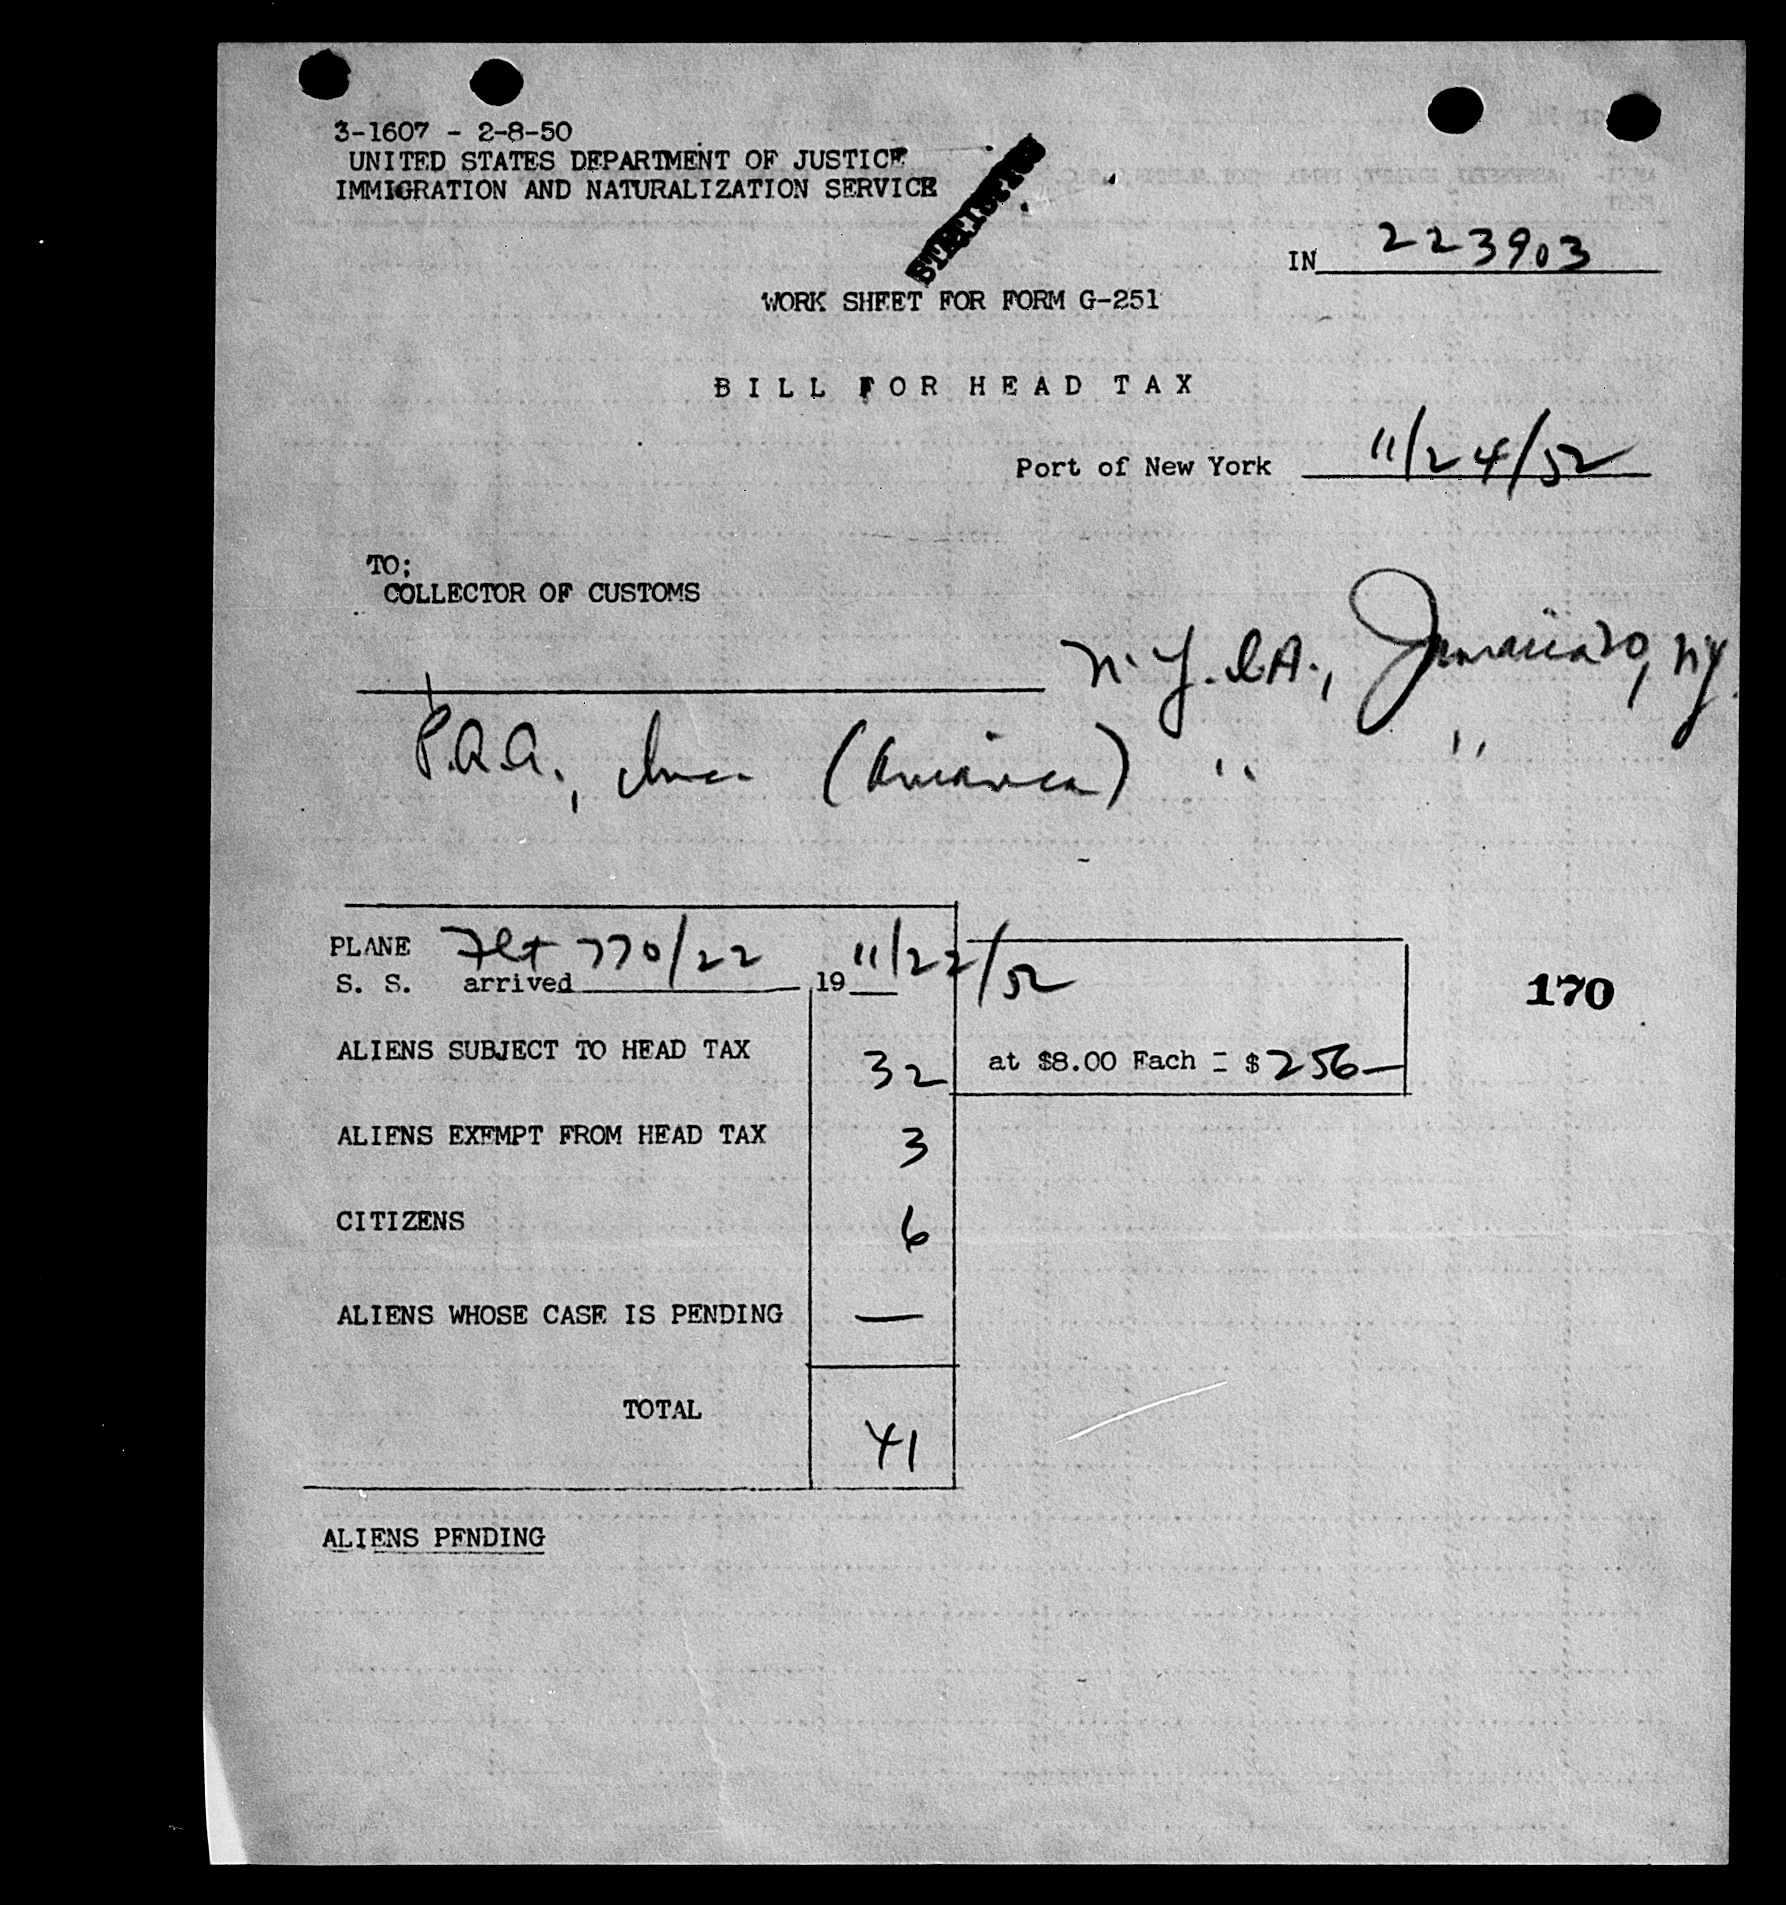 3-1607 - 2-8-50
UNITED STATES DEPARTMENT OF JUSTICE
IMMIGRATION AND NATURALIZATION SERVICE
STATISTICS
IN 223903
WORK SHEET FOR FORM G-251
BILL FOR HEAD TAX
Port of New York 11/24/52
TO:
COLLECTOR OF CUSTOMS
N.Y.I.A., Jamaica 30, NY.
P.A.A., Inc. (America) " "
PLANE Flt 770/22 11/22/52
S. S. arrived 19
170
ALIENS SUBJECT TO HEAD TAX 32 at $8.00 Each = $ 256—
ALIENS EXEMPT FROM HEAD TAX 3
CITIZENS 6
ALIENS WHOSE CASE IS PENDING —
TOTAL 41
ALIENS PENDING